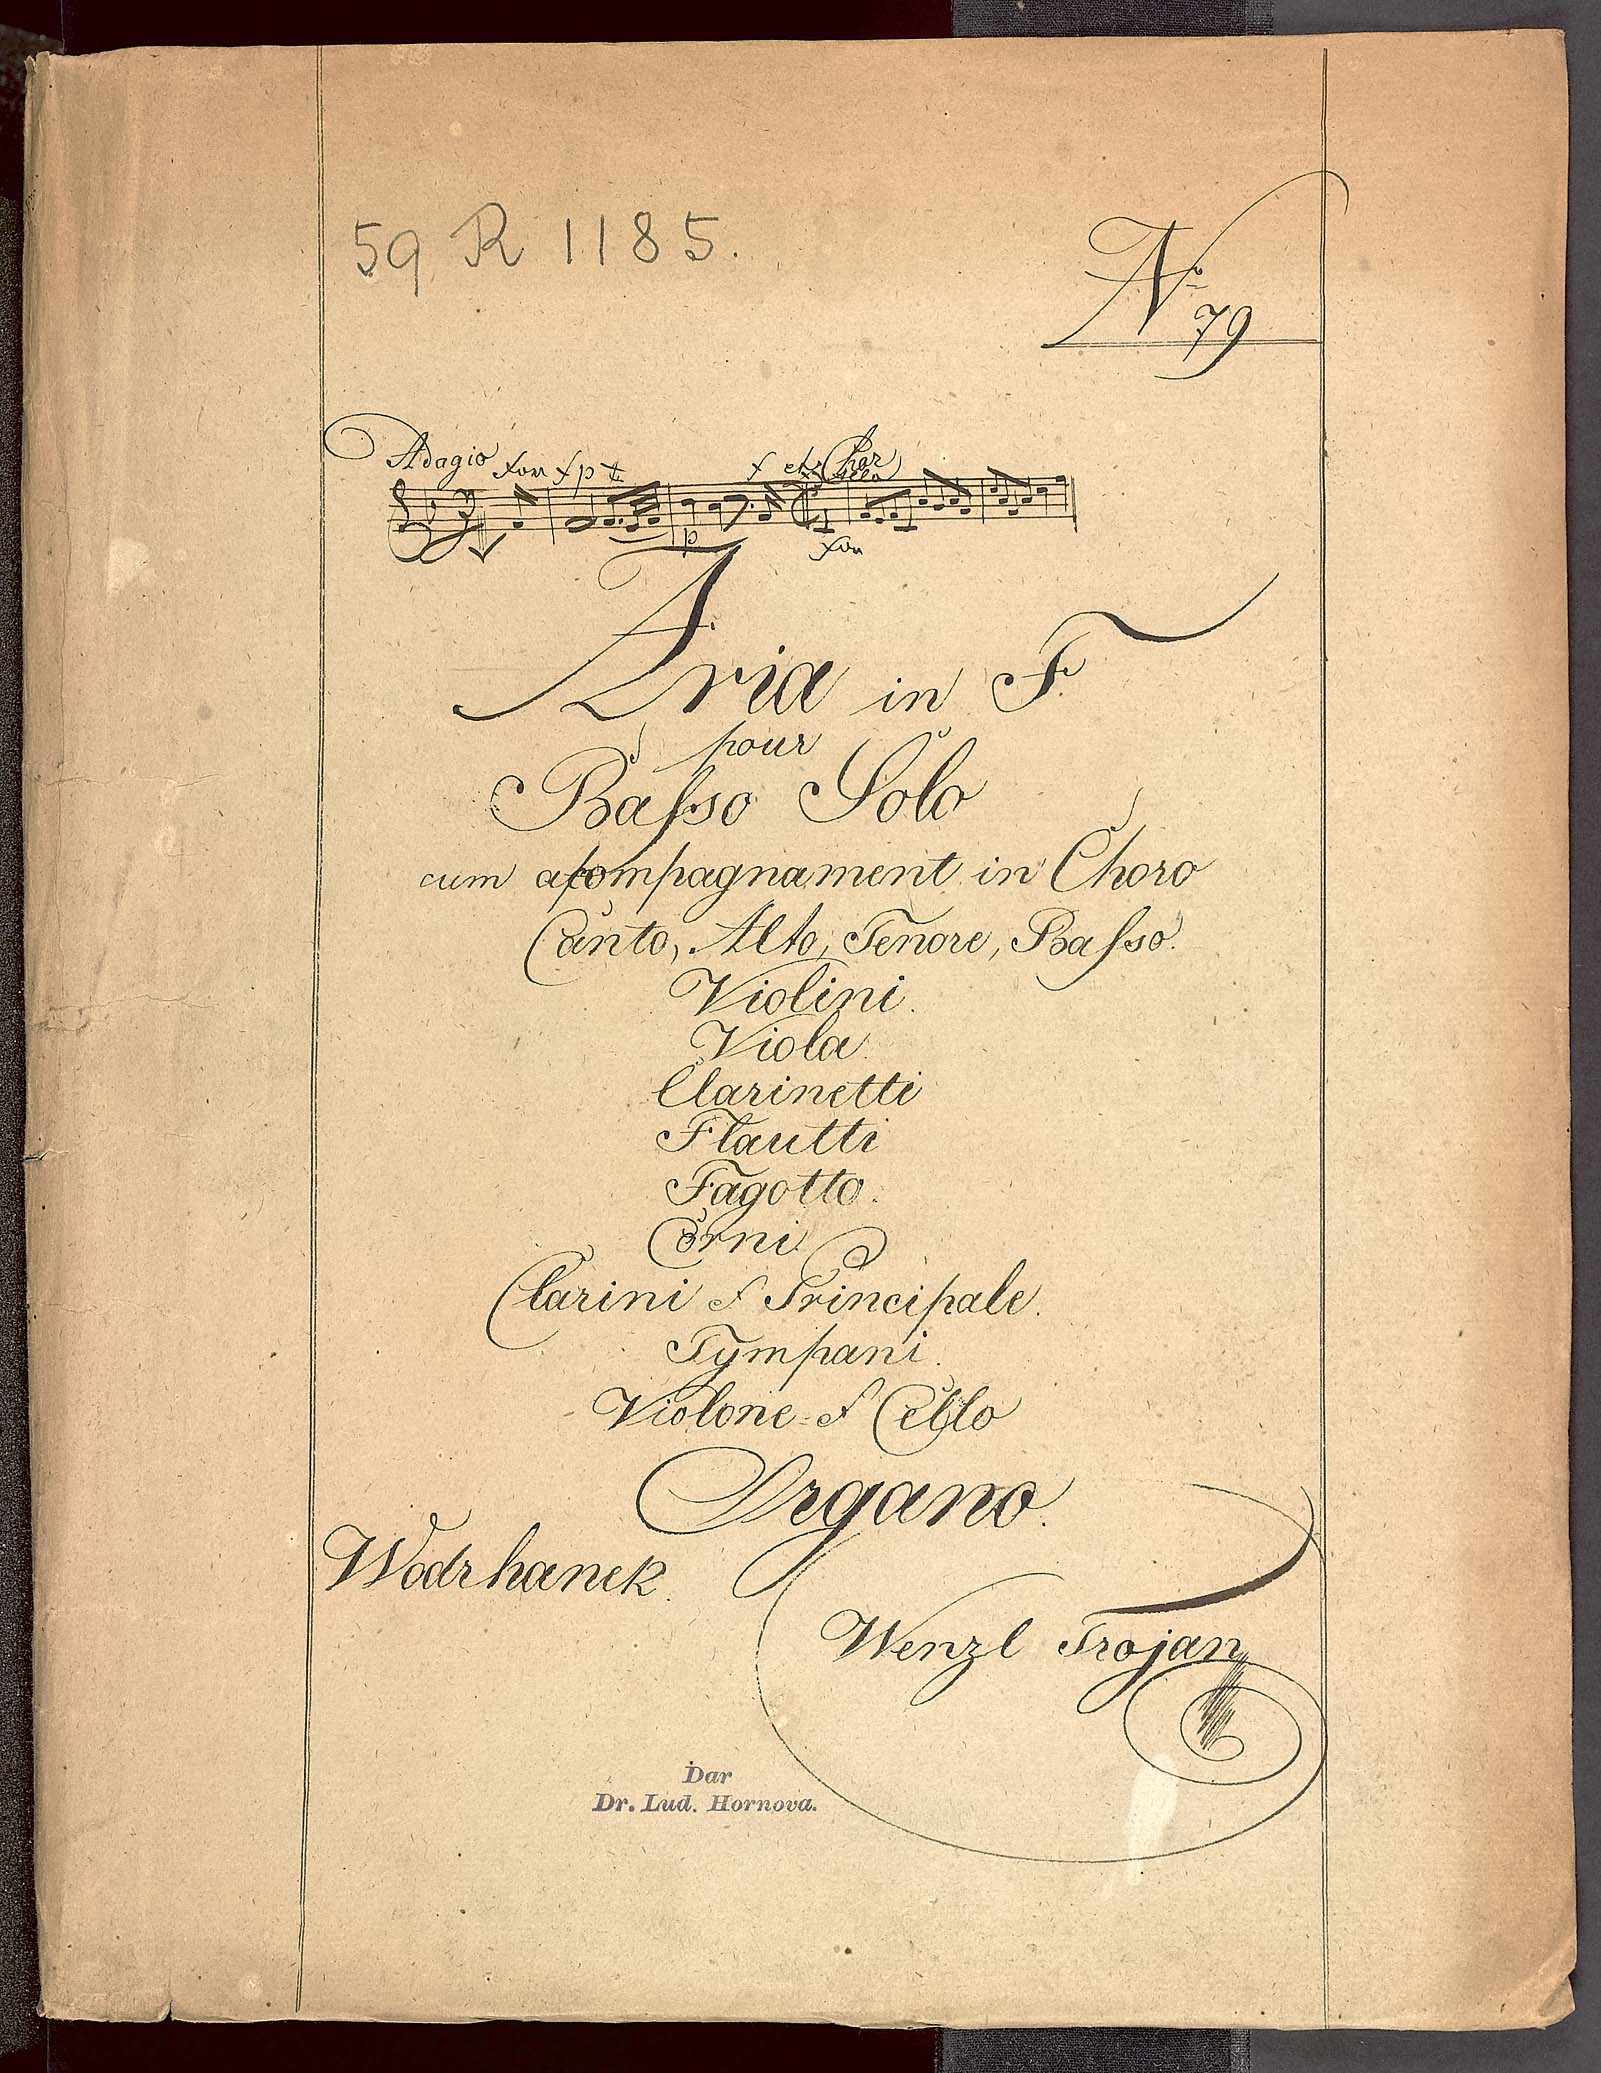 59 R 1185.
No 79
Adagio for f p f etr Chor
p for
Aria in F.
pour
Basso Solo
cum acompagnament in Choro
Canto, Alto, Tenore, Basso.
Violini.
Viola.
Clarinetti
Flautti
Fagotto.
Corni.
Clarini et Principale.
Tympani.
Violone et Cello
Organo.
Wodrhanek.
Wenzl Trojan
Dar
Dr. Lud. Hornova.